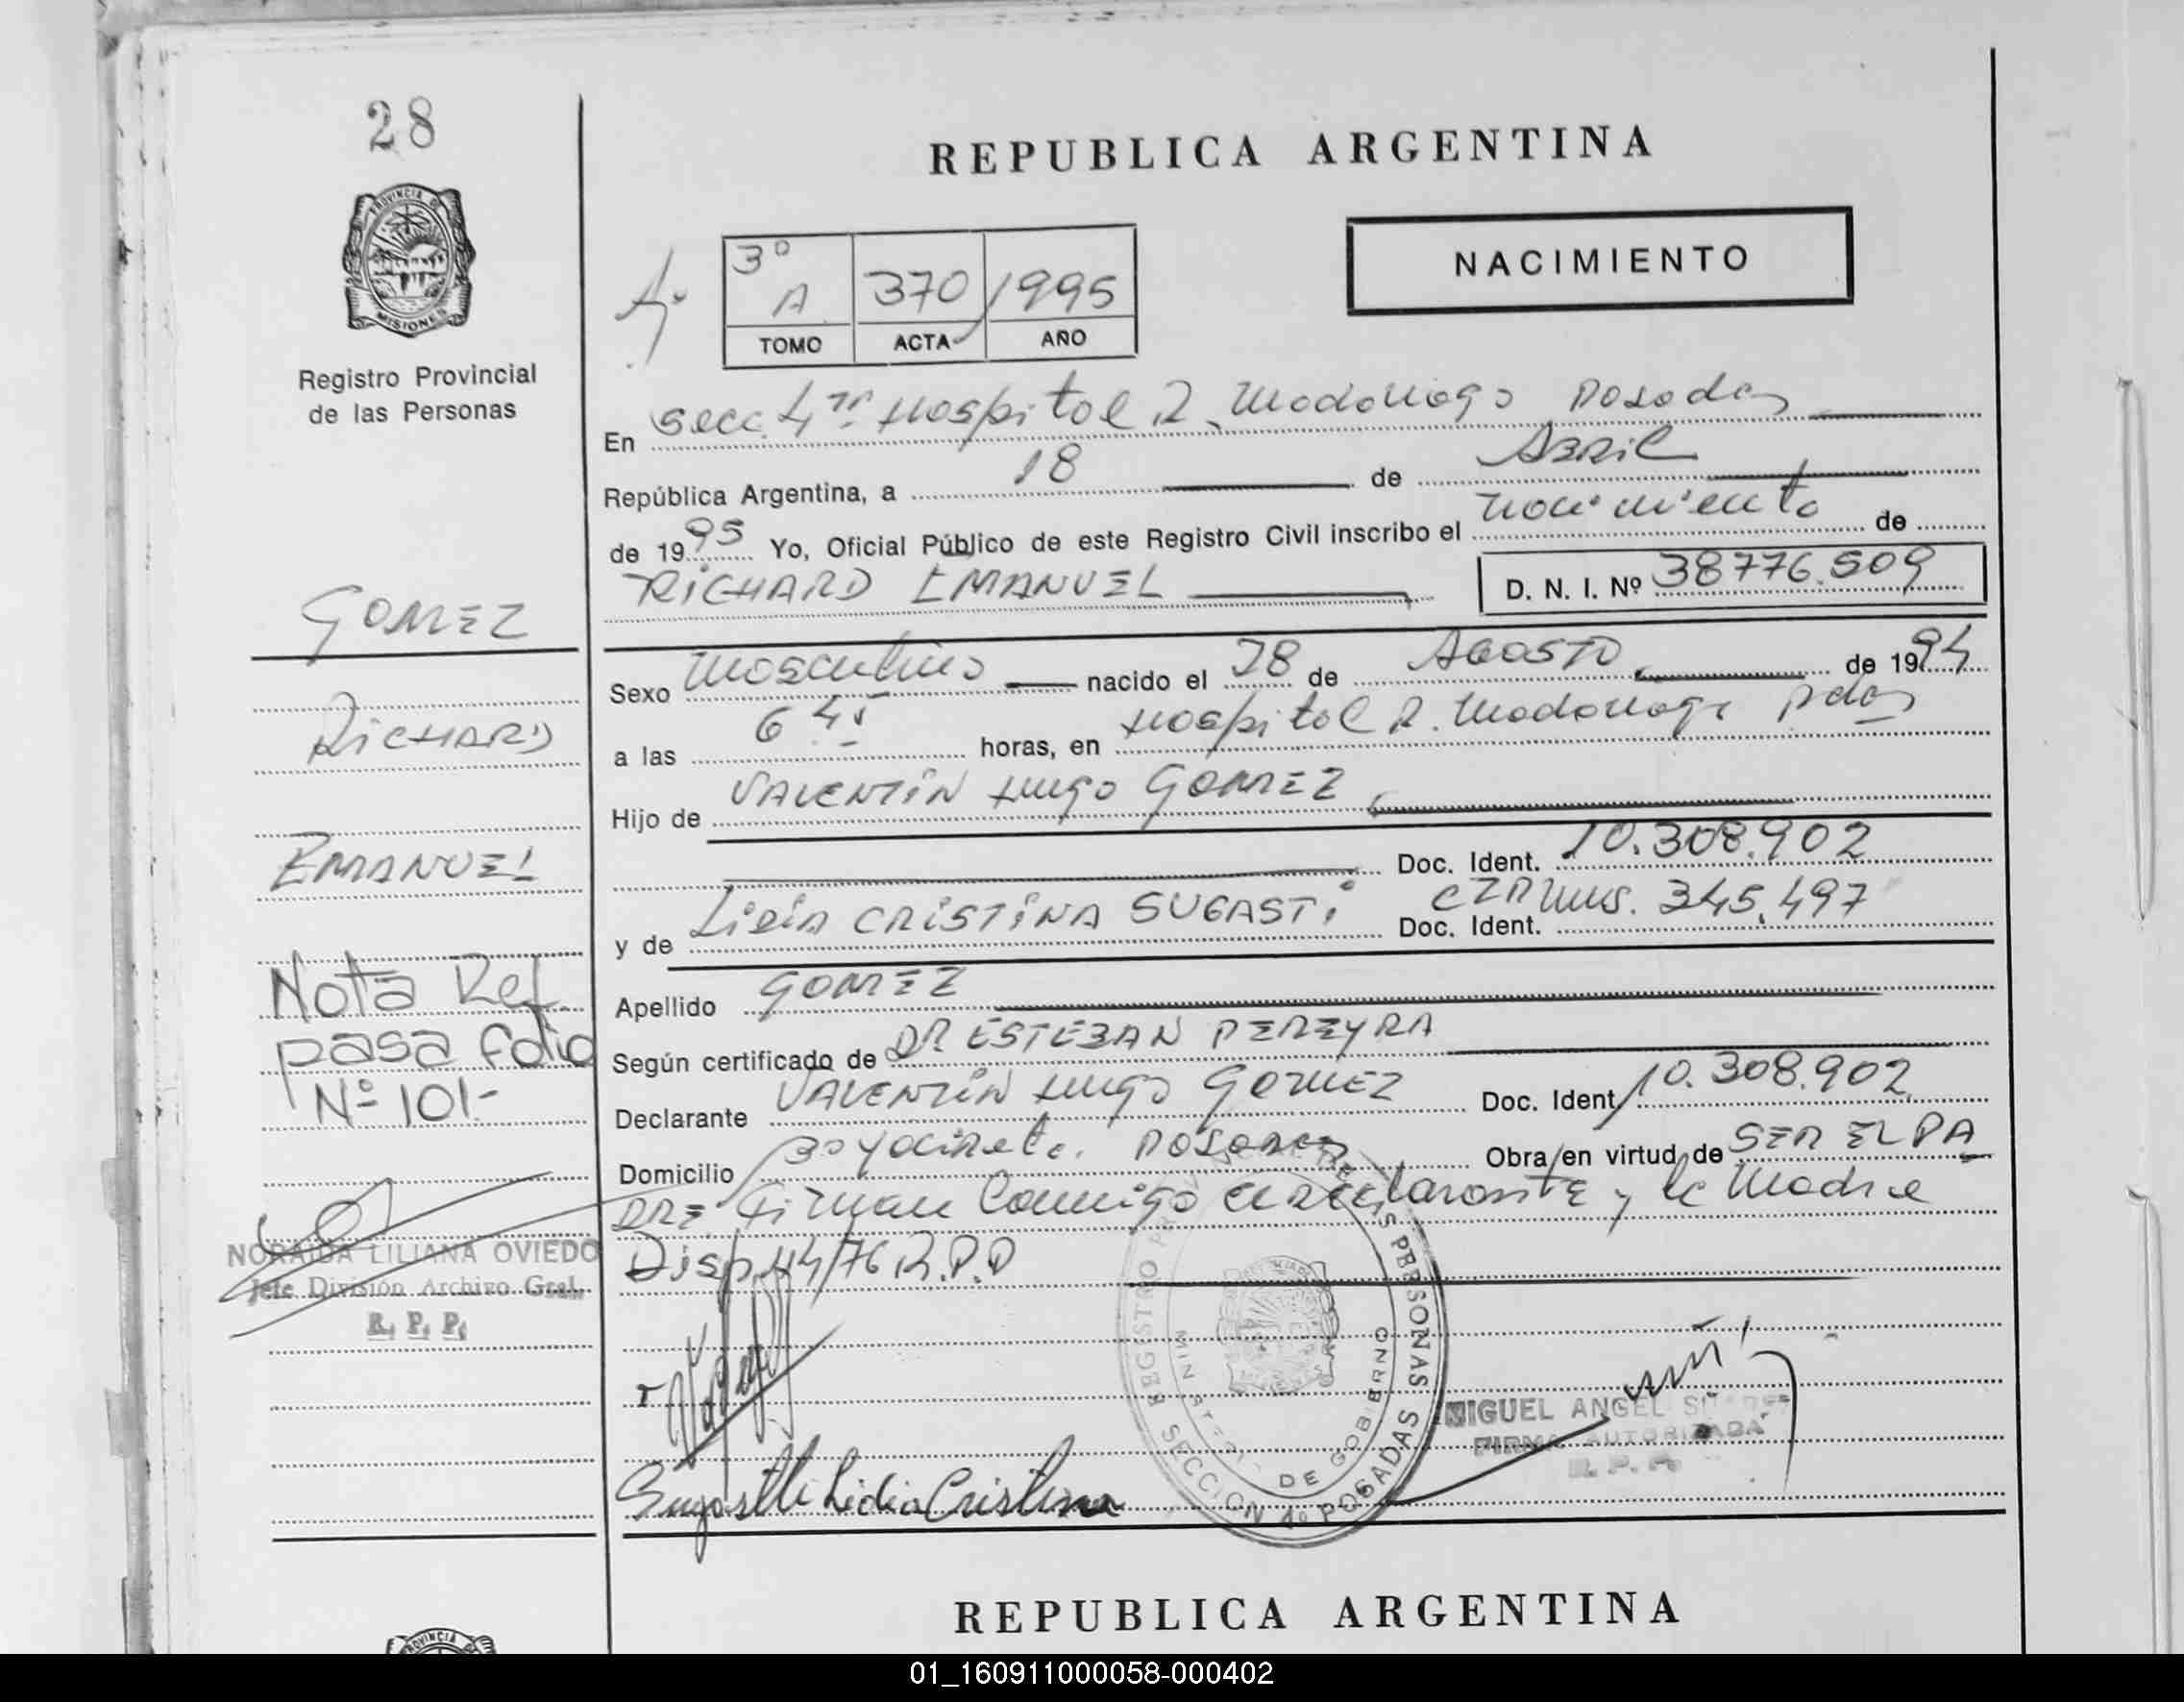 28
REPUBLICA ARGENTINA
PROVINCIA DE
MISIONES
Registro Provincial
de las Personas
3º
A
370
1995
TOMO
ACTA
AÑO
NACIMIENTO
En Secc. 4ta Hospital R. Madariaga Posadas
República Argentina, a 18 de Abril
de 1995 Yo, Oficial Público de este Registro Civil inscribo el nacimiento de
RICHARD EMANUEL D. N. I. Nº 38776.509
GOMEZ
RICHARD
EMANUEL
Sexo Masculino nacido el 28 de AGOSTO de 1994
a las 6 45 horas, en Hospital R. Madariaga Pdas
Hijo de VALENTIN Hugo GOMEZ
Doc. Ident. 10.308.902
y de LIDIA CRISTINA SUGASTi Doc. Ident. 345.497
Nota Ref.
pasa folio
Nº 101.-
Apellido GOMEZ
Según certificado de DR ESTEBAN PEREYRA
Declarante VALENTIN Hugo GOMEZ Doc. Ident. 10.308.902
Domicilio Bº Yacireta. POSADAS Obra en virtud de SER EL PA
DRE Firman Conmigo el declarante y la Madre
Disp. 44/76 R.P.P
NORAIDA LILIANA OVIEDO
Jefe División Archivo Gral.
R. P. P.
REGISTRO DE LAS PERSONAS
SECCION 4º POSADAS
MINISTERIO DE GOBIERNO
MIGUEL ANGEL
FIRMA AUTORIZADA
R. P. P.
Sugastti Lidia Cristina
REPUBLICA ARGENTINA
PROVINCIA
01_160911000058-000402